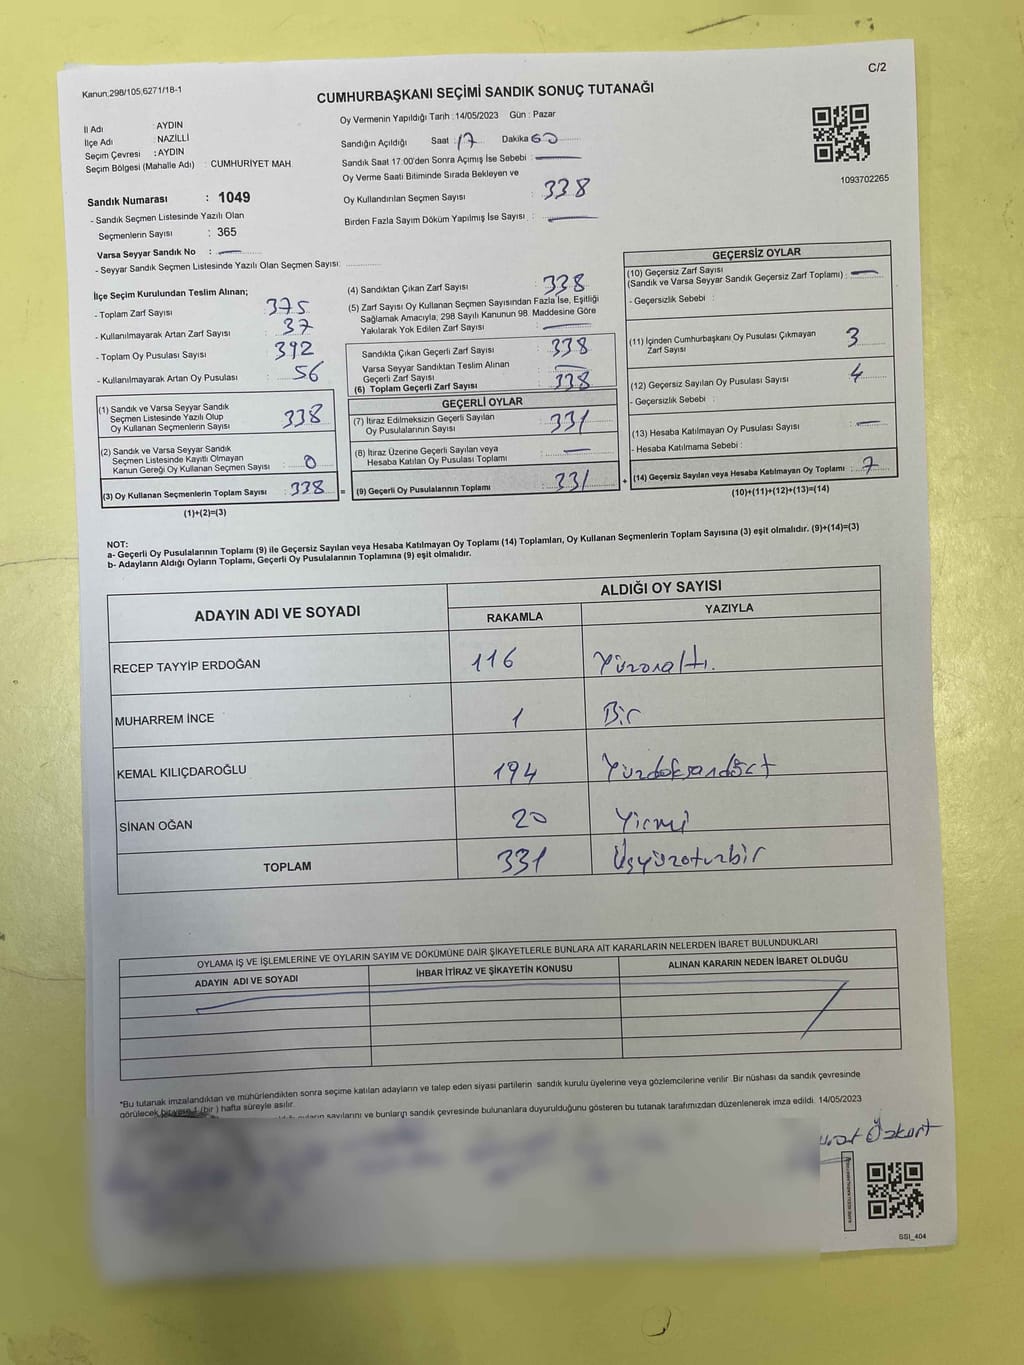 C/2
Kanun,298/105,6271/18-1
CUMHURBAŞKANI SEÇİMİ SANDIK SONUÇ TUTANAĞI
İl Adı : AYDIN
İlçe Adı : NAZİLLİ
Seçim Çevresi : AYDIN
Seçim Bölgesi (Mahalle Adı) : CUMHURİYET MAH.
Sandık Numarası : 1049
- Sandık Seçmen Listesinde Yazılı Olan
Seçmenlerin Sayısı : 365
Varsa Seyyar Sandık No :
- Seyyar Sandık Seçmen Listesinde Yazılı Olan Seçmen Sayısı:
Oy Vermenin Yapıldığı Tarih : 14/05/2023 Gün : Pazar
Sandığın Açıldığı Saat : 17 Dakika 60
Sandık Saat 17:00'den Sonra Açımış İse Sebebi :
Oy Verme Saati Bitiminde Sırada Bekleyen ve
Oy Kullandırılan Seçmen Sayısı : 338
Birden Fazla Sayım Döküm Yapılmış İse Sayısı :
1093702265
İlçe Seçim Kurulundan Teslim Alınan;
- Toplam Zarf Sayısı : 375
- Kullanılmayarak Artan Zarf Sayısı : 37
- Toplam Oy Pusulası Sayısı : 392
- Kullanılmayarak Artan Oy Pusulası : 56
(1) Sandık ve Varsa Seyyar Sandık
Seçmen Listesinde Yazılı Olup
Oy Kullanan Seçmenlerin Sayısı : 338
(2) Sandık ve Varsa Seyyar Sandık
Seçmen Listesinde Kayıtlı Olmayan
Kanun Gereği Oy Kullanan Seçmen Sayısı : 0
(3) Oy Kullanan Seçmenlerin Toplam Sayısı : 338 =
(1)+(2)=(3)
(4) Sandıktan Çıkan Zarf Sayısı : 338
(5) Zarf Sayısı Oy Kullanan Seçmen Sayısından Fazla İse, Eşitliği
Sağlamak Amacıyla, 298 Sayılı Kanunun 98. Maddesine Göre
Yakılarak Yok Edilen Zarf Sayısı :
Sandıkta Çıkan Geçerli Zarf Sayısı : 338
Varsa Seyyar Sandıktan Teslim Alınan
Geçerli Zarf Sayısı
(6) Toplam Geçerli Zarf Sayısı : 338
GEÇERLİ OYLAR
(7) İtiraz Edilmeksizin Geçerli Sayılan
Oy Pusulalarının Sayısı : 331
(8) İtiraz Üzerine Geçerli Sayılan veya
Hesaba Katılan Oy Pusulası Toplamı :
(9) Geçerli Oy Pusulalarının Toplamı : 331 +
GEÇERSİZ OYLAR
(10) Geçersiz Zarf Sayısı
(Sandık ve Varsa Seyyar Sandık Geçersiz Zarf Toplamı) :
- Geçersizlik Sebebi :
(11) İçinden Cumhurbaşkanı Oy Pusulası Çıkmayan
Zarf Sayısı : 3
(12) Geçersiz Sayılan Oy Pusulası Sayısı : 4
- Geçersizlik Sebebi :
(13) Hesaba Katılmayan Oy Pusulası Sayısı :
- Hesaba Katılmama Sebebi :
(14) Geçersiz Sayılan veya Hesaba Katılmayan Oy Toplamı : 7
(10)+(11)+(12)+(13)=(14)
NOT:
a- Geçerli Oy Pusulalarının Toplamı (9) ile Geçersiz Sayılan veya Hesaba Katılmayan Oy Toplamı (14) Toplamları, Oy Kullanan Seçmenlerin Toplam Sayısına (3) eşit olmalıdır. (9)+(14)=(3)
b- Adayların Aldığı Oyların Toplamı, Geçerli Oy Pusulalarının Toplamına (9) eşit olmalıdır.
ADAYIN ADI VE SOYADI
ALDIĞI OY SAYISI
RAKAMLA YAZIYLA
RECEP TAYYİP ERDOĞAN 116 Yüzonaltı.
MUHARREM İNCE 1 Bir
KEMAL KILIÇDAROĞLU 194 Yüzdoksandört
SİNAN OĞAN 20 Yirmi
TOPLAM 331 Üçyüzotuzbir
OYLAMA İŞ VE İŞLEMLERİNE VE OYLARIN SAYIM VE DÖKÜMÜNE DAİR ŞİKAYETLERLE BUNLARA AİT KARARLARIN NELERDEN İBARET BULUNDUKLARI
ADAYIN ADI VE SOYADI İHBAR İTİRAZ VE ŞİKAYETİN KONUSU ALINAN KARARIN NEDEN İBARET OLDUĞU
*Bu tutanak imzalandıktan ve mühürlendikten sonra seçime katılan adayların ve talep eden siyasi partilerin sandık kurulu üyelerine veya gözlemcilerine verilir. Bir nüshası da sandık çevresinde
görülecek bir yere 1 (bir) hafta süreyle asılır.
sayılarını ve bunların sandık çevresinde bulunanlara duyurulduğunu gösteren bu tutanak tarafımızdan düzenlenerek imza edildi. 14/05/2023
Özkurt
SSI_404